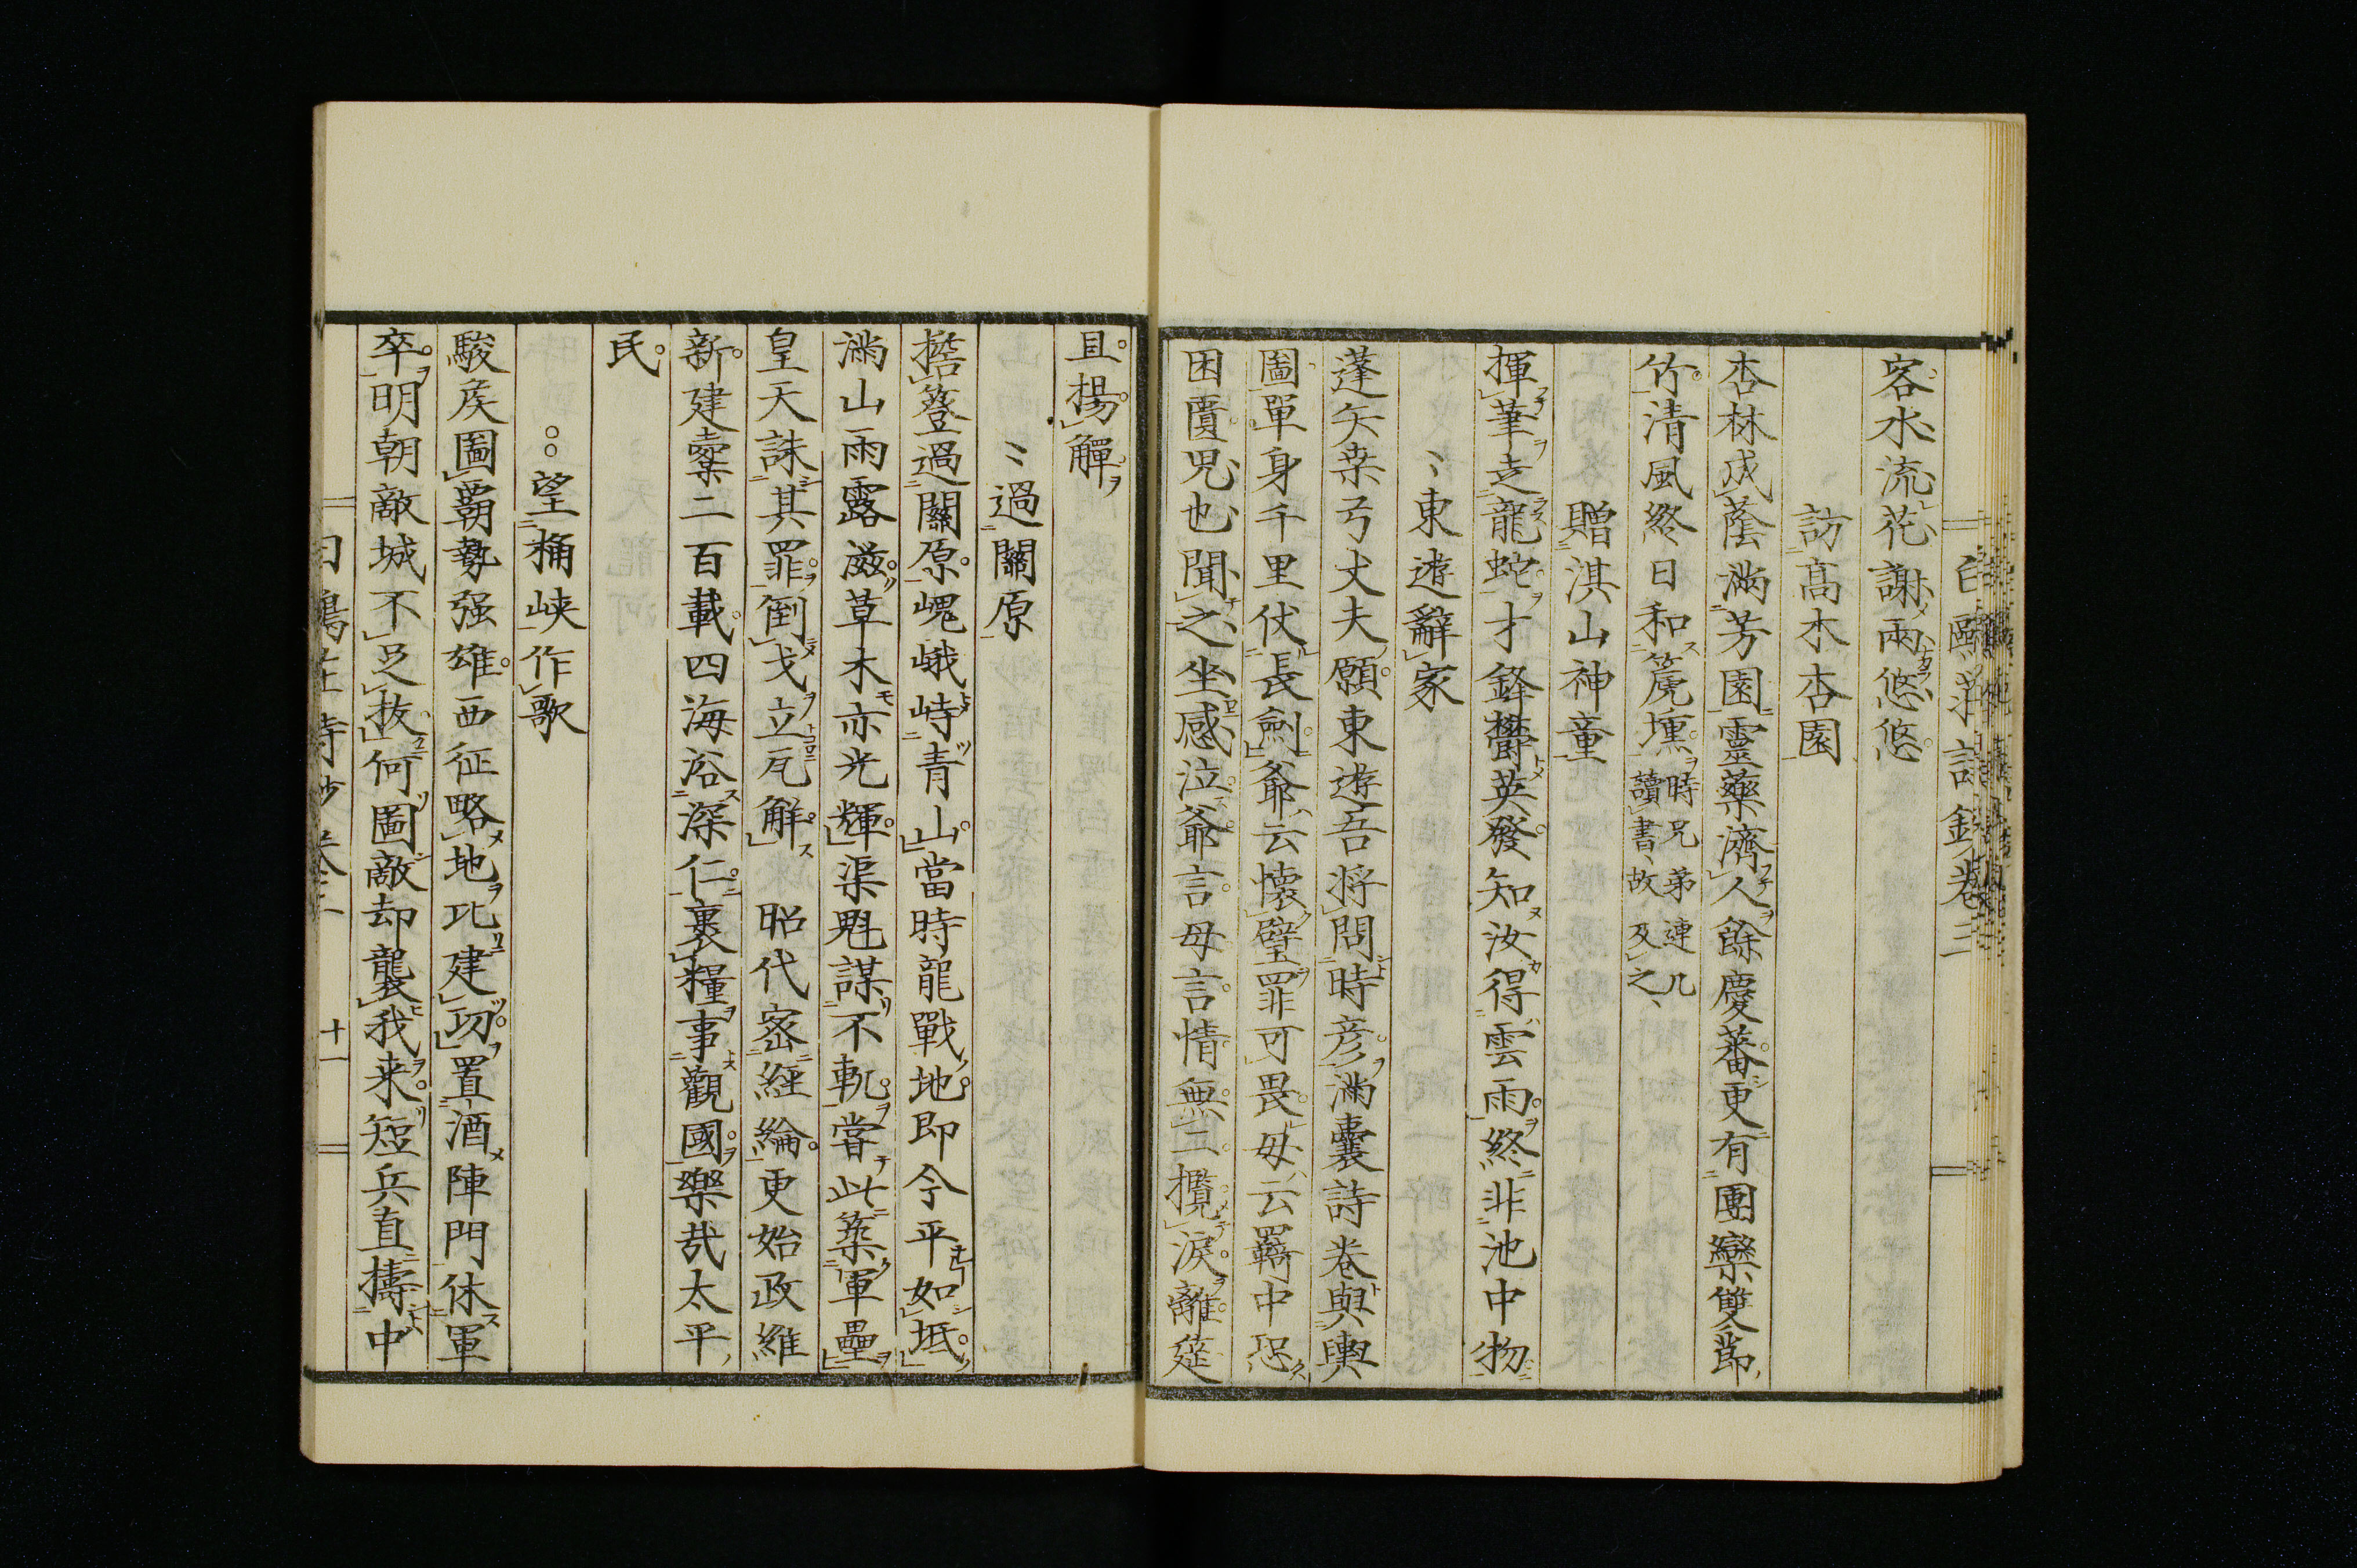 白鷗莊詩鈔卷三
客水流花謝兩悠悠
訪高木杏園
杏林成蔭滿芳園靈藥濟人餘慶蕃更有團欒雙節
竹清風終日和箎壎時兄弟連几讀書故及之
贈淇山神童
揮筆走龍蛇才鋒欝英發知汝得雲雨終非池中物
東遊辭家
蓬矢桒弓丈夫願東遊吾将問時彦滿囊詩卷與輿
圖單身千里仗長劍爺云懐璧罪可畏毋云羈中恐
困匱児也聞之坐感泣爺言毋言情無二攬淚離筵
且揚觶
過關原
擔簦過關原嵬峨峙青山當時龍戰地即今平如坻
滿山雨露滋草木亦光輝渠魁謀不軌嘗此築軍壘
皇天誅其罪倒戈立瓦解昭代密經綸更始政維
新建櫜二百載四海浴深仁裹糧事觀國樂哉太平
民
望桶峡作歌
駿矦圖霸勢强雄西征略地比建功置酒陣門休軍
卒明朝敵城不足抜何圖敵却襲我来短兵直擣中
白鷗莊詩鈔卷三 十一